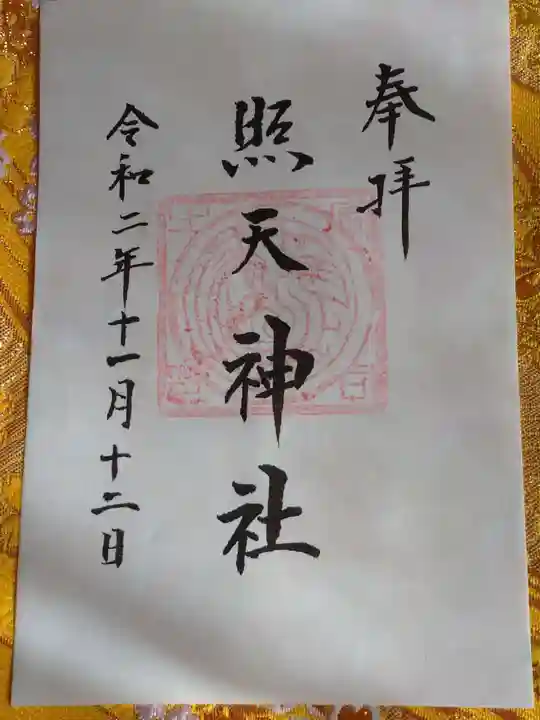 奉拝
照天神社
令和二年十一月十二日